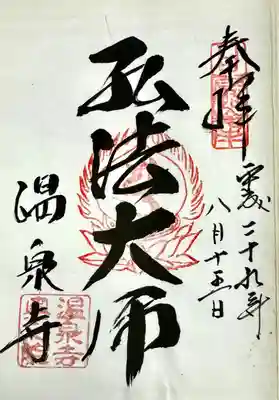 奉拝
平成二十九年
八月十五日
弘法大師
温泉寺
温泉寺